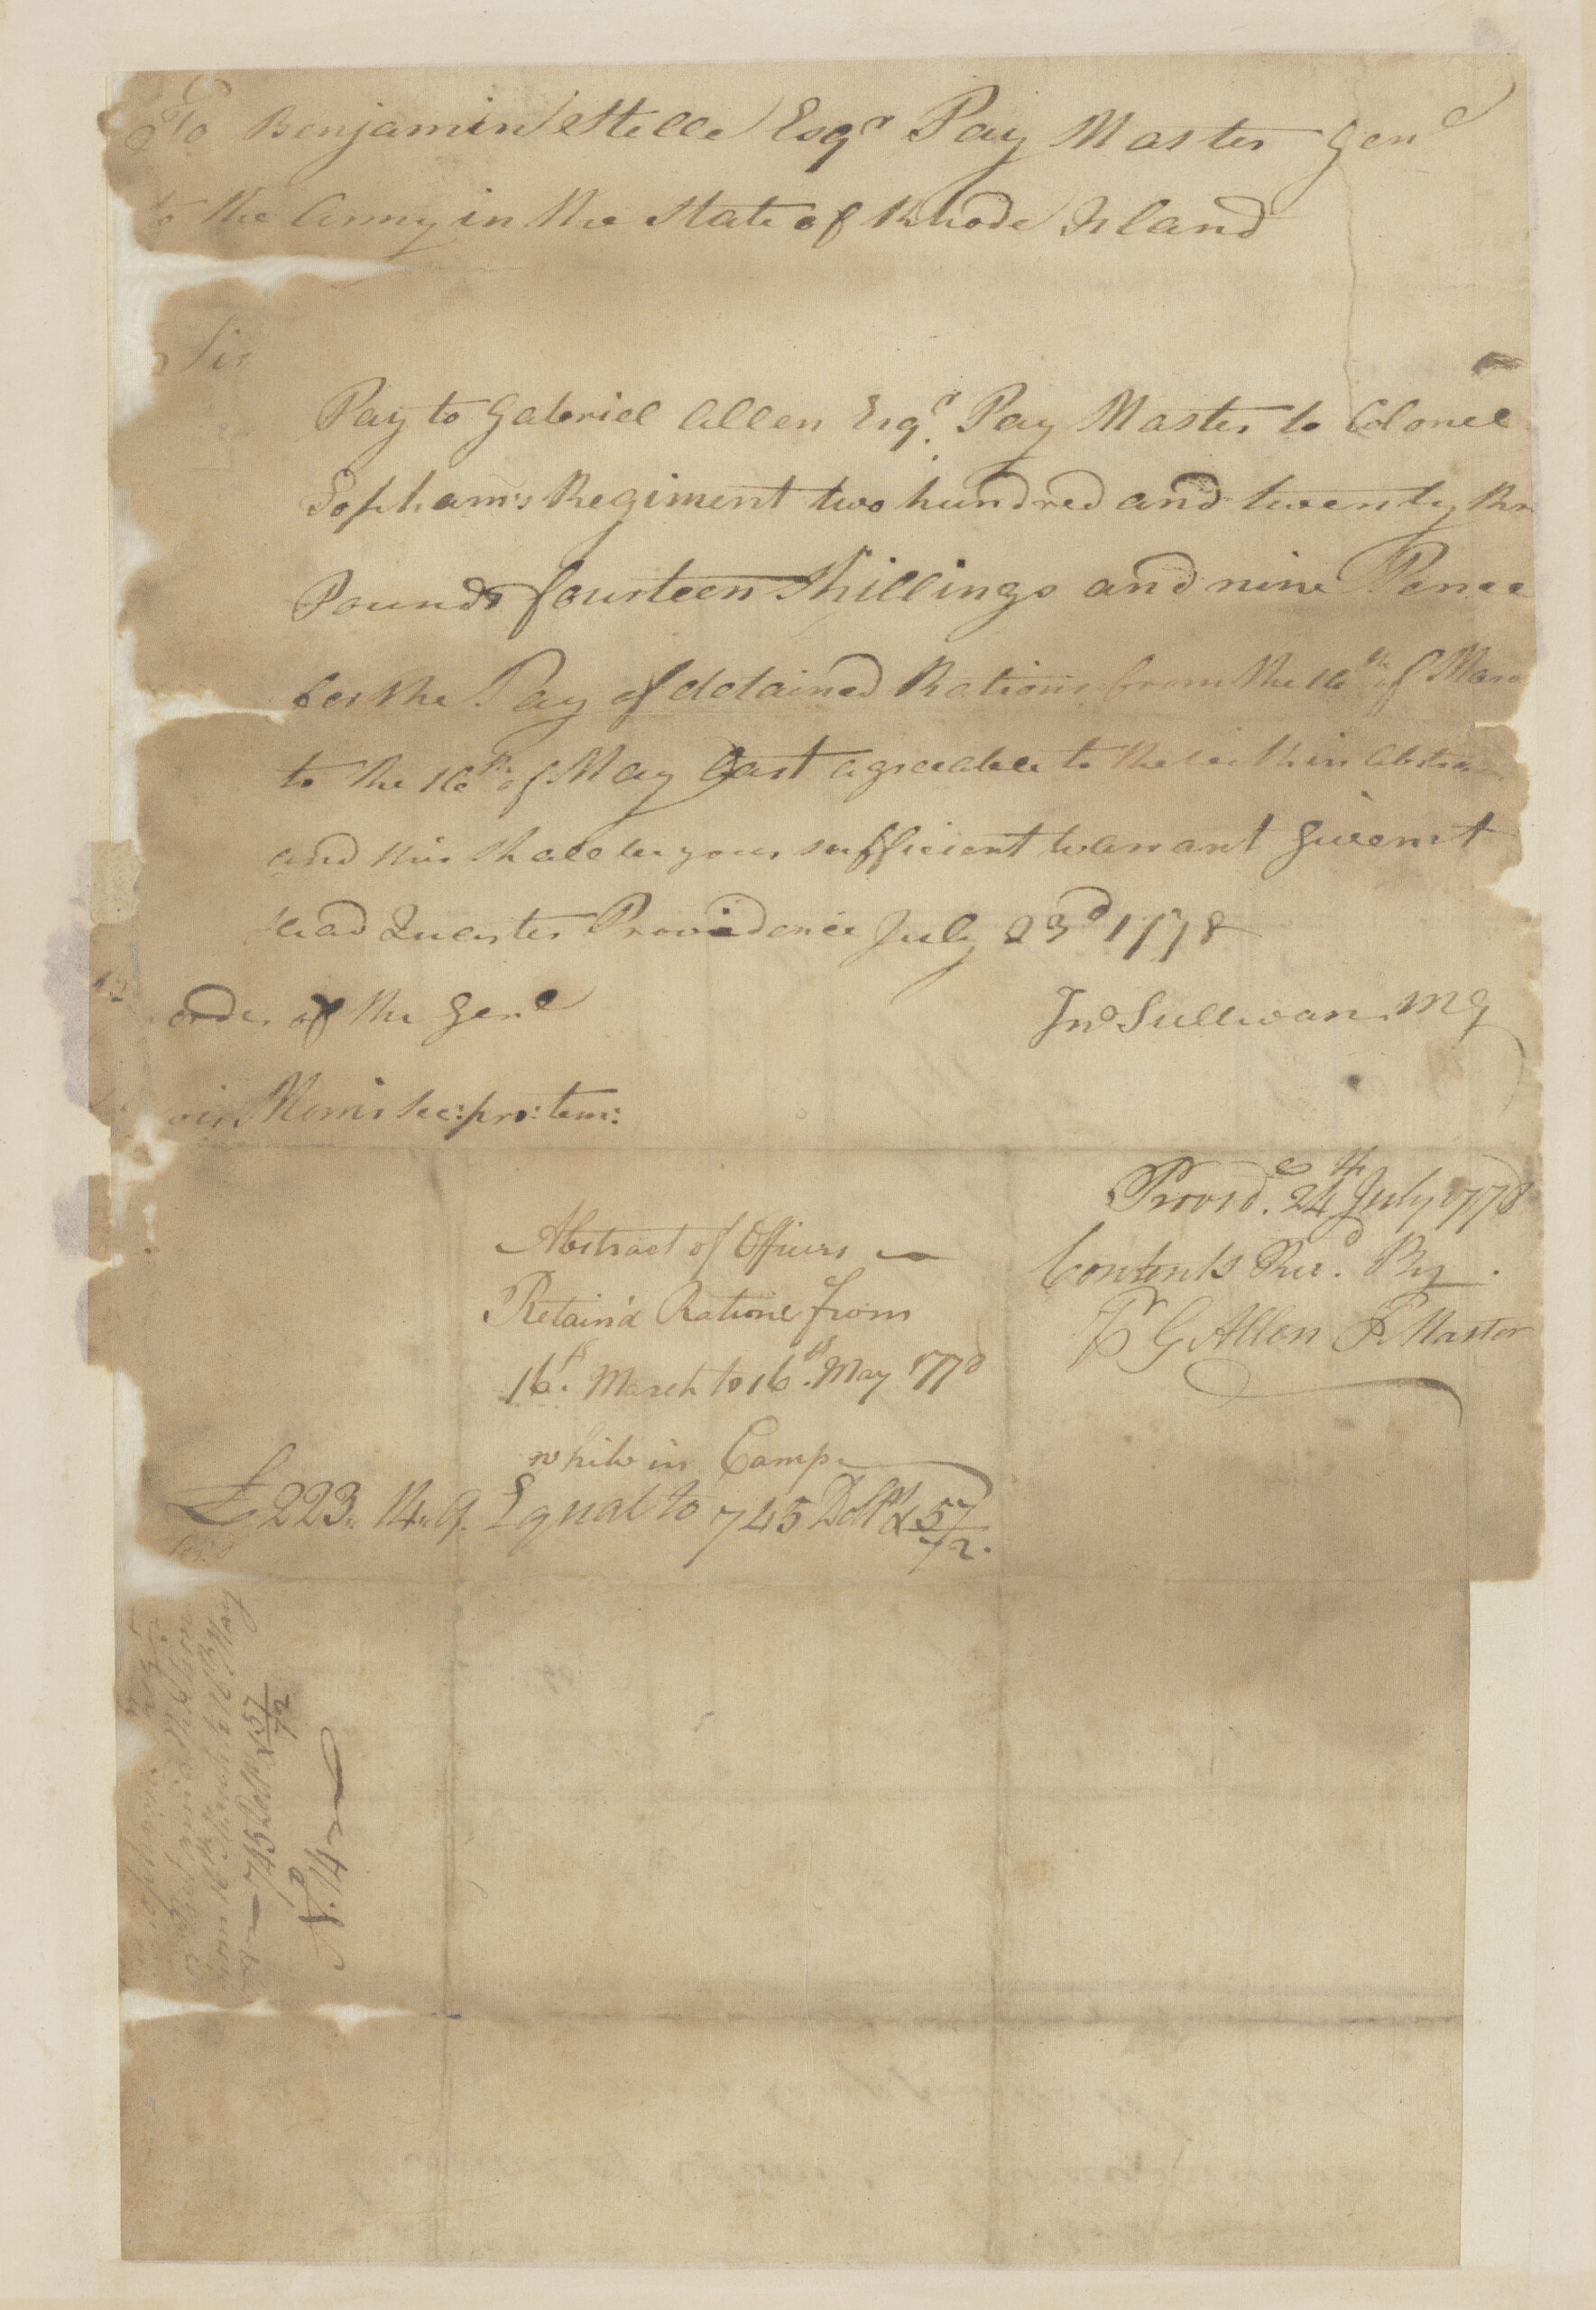 To Benjamin Stelle Esqr Pay Master Genl
to the Army in the State of Rhode Island
Sir
Pay to Gabriel Allen Esqr. Pay Master to Colonel
Topham's Regiment two hundred and twenty thr
Pounds fourteen Shillings and nine Pence
for the Pay of detained Rations from the 16th of Marc
to the 16th of May last agreeable to the within Abstra
and this shall be your sufficient warrant Given at
Head Quarter Providence July 23d 1778
order of the Genl
Jno Sullivan MG
Morris Sec: pro: tem:
Provide. 24th July 1778
Contents Recd. By
Pr G Allen P Master
Abstract of Officers
Retain'd Rations from
16th. March to 16th. May 1778
while in Camp
£223. 14. 9. Equal to 745 Dollrs & 57/72.
from 16th March to 16th May
745 Dollrs & 57/72
No. 14